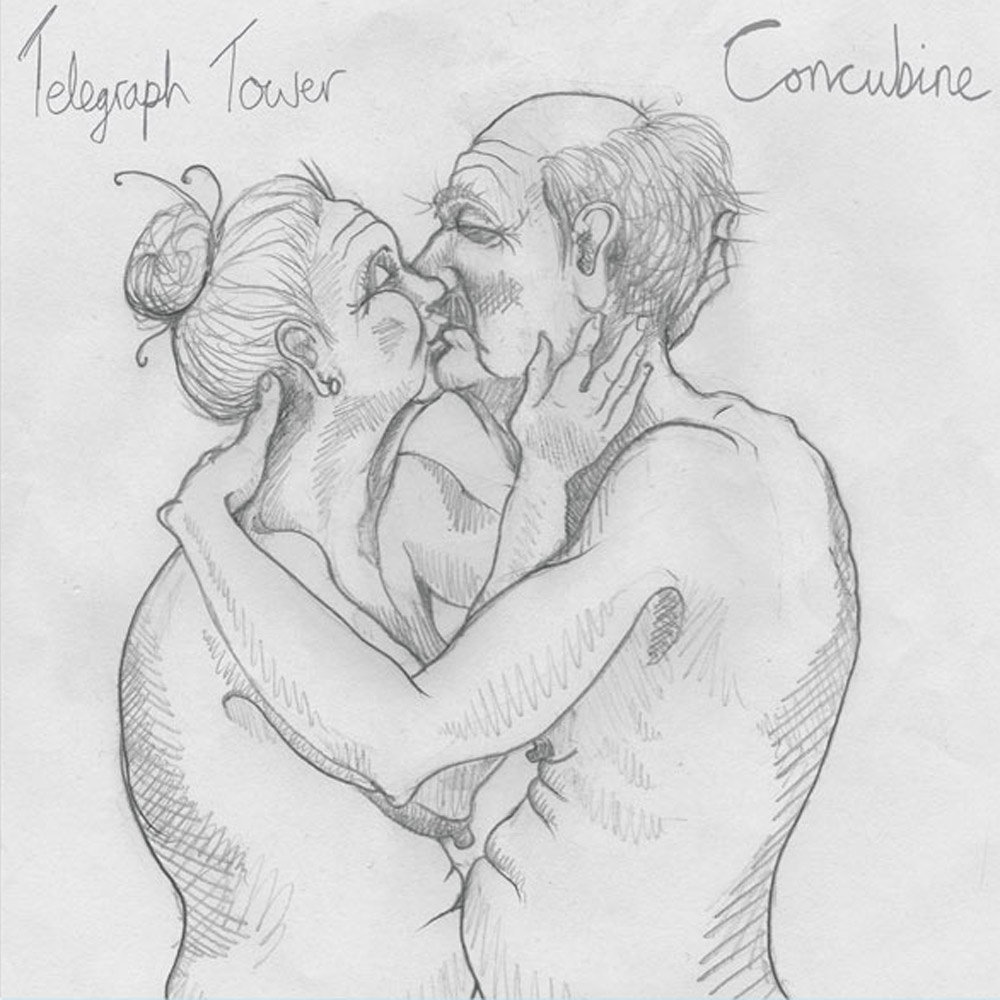 Telegraph Tower
Concubine